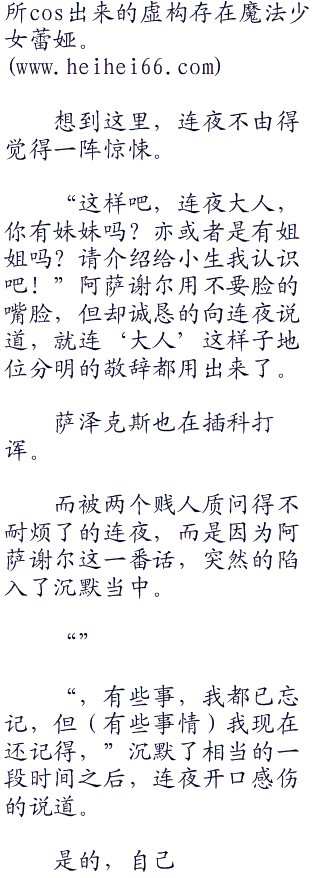 所cos出来的虚构存在魔法少
女蕾娅。
(www.heihei66.com)
想到这里，连夜不由得
觉得一阵惊悚。
“这样吧，连夜大人，
你有妹妹吗？亦或者是有姐
姐吗？请介绍给小生我认识
吧！”阿萨谢尔用不要脸的
嘴脸，但却诚恳的向连夜说
道，就连‘大人’这样子地
位分明的敬辞都用出来了。
萨泽克斯也在插科打
诨。
而被两个贱人质问得不
耐烦了的连夜，而是因为阿
萨谢尔这一番话，突然的陷
入了沉默当中。
“”
“，有些事，我都已忘
记，但（有些事情）我现在
还记得，”沉默了相当的一
段时间之后，连夜开口感伤
的说道。
是的，自己